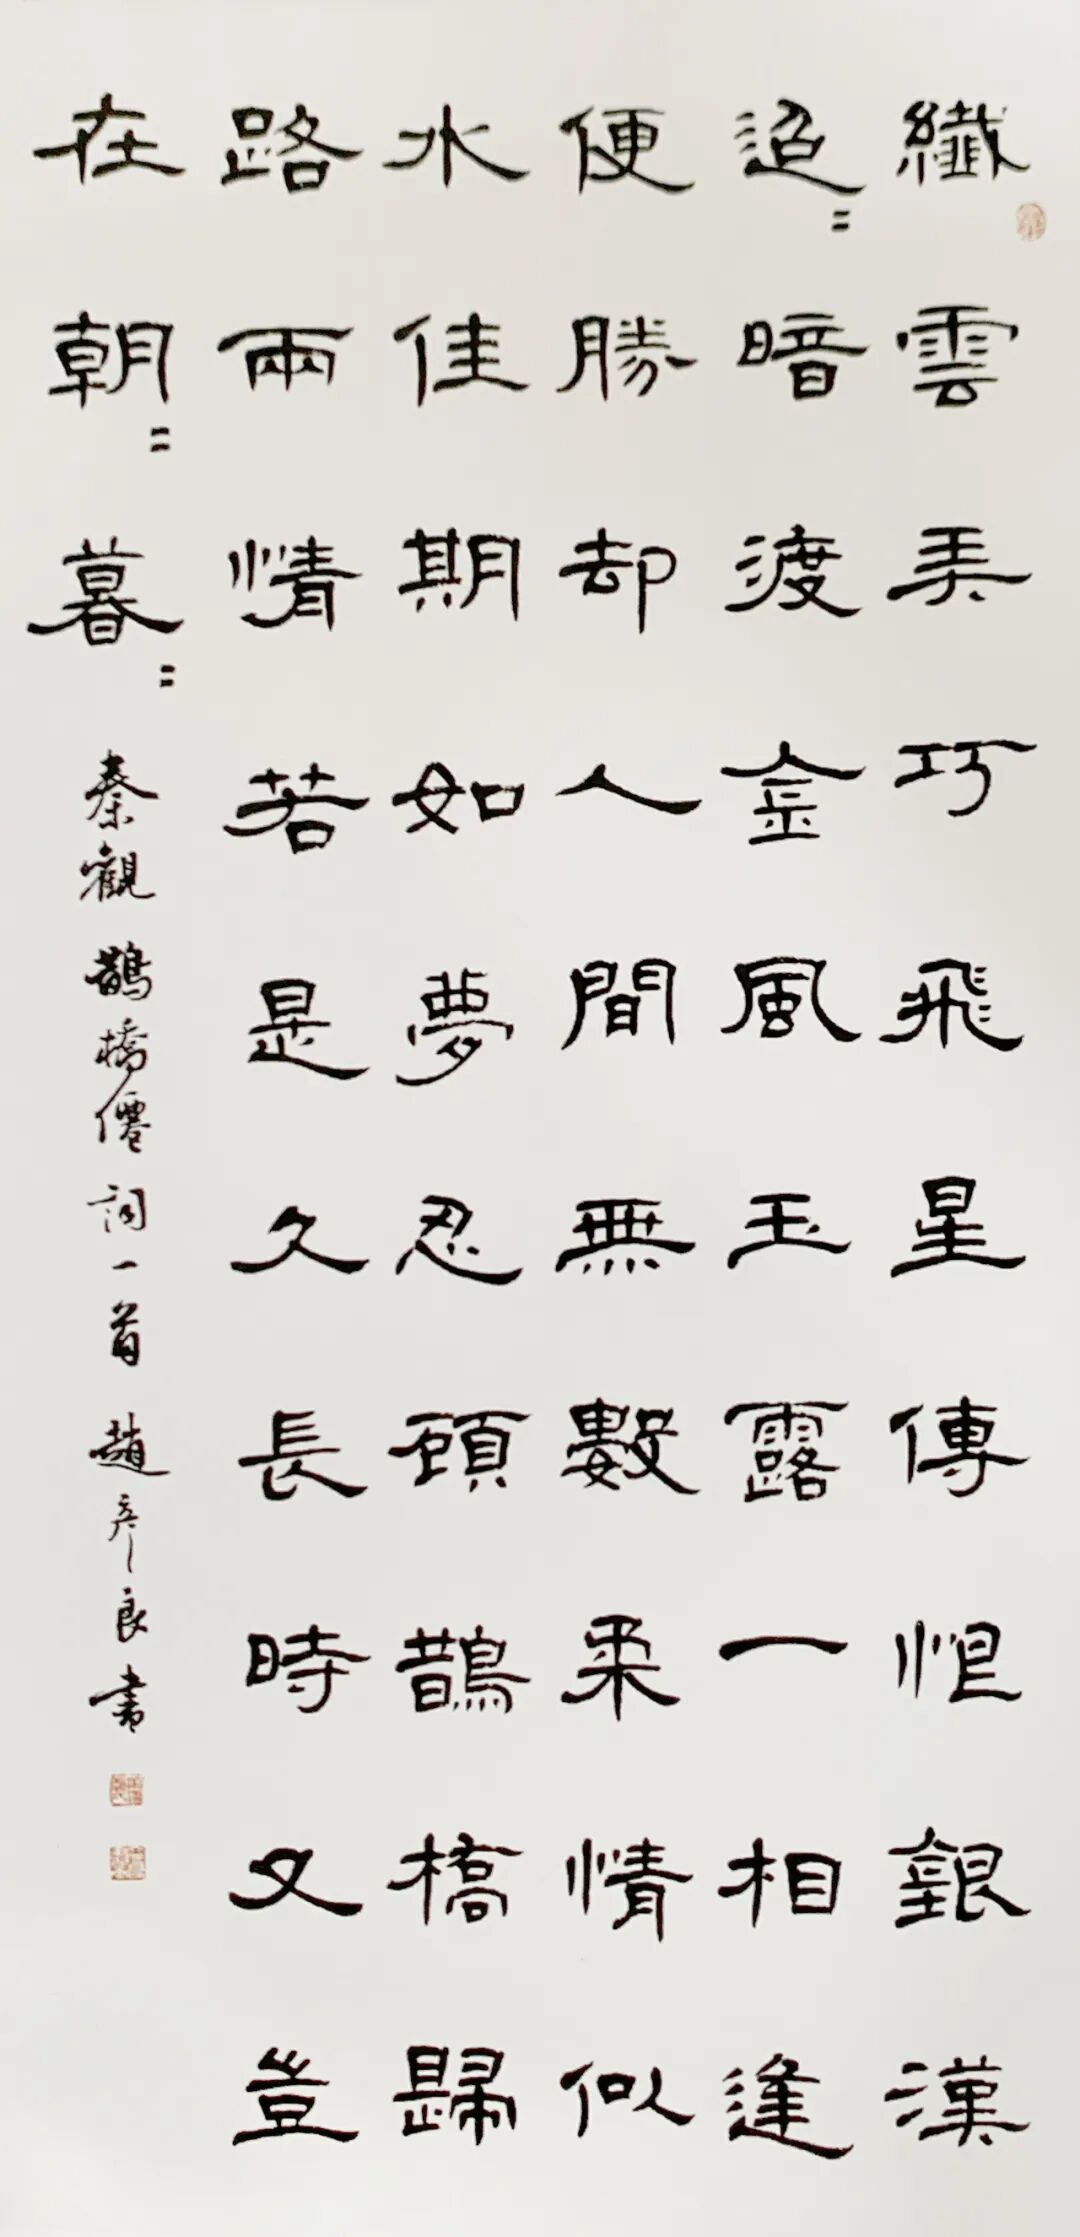 纖雲弄巧飛星傳恨銀漢
迢〻暗渡金風玉露一相逢
便勝却人間無數柔情似
水佳期如夢忍顧鵲橋歸
路兩情若是久長時又豈
在朝〻暮〻
秦觀鵲橋僊詞一首趙彥良書